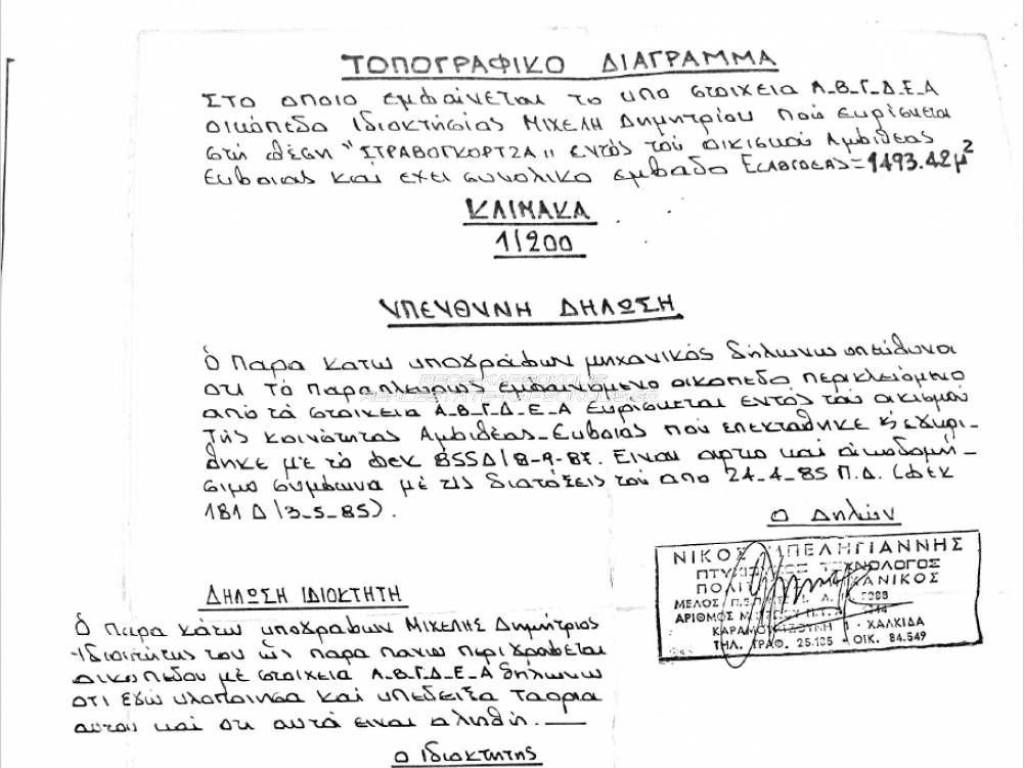 ΤΟΠΟΓΡΑΦΙΚΟ ΔΙΑΓΡΑΜΜΑ
Στο οποιο εμφαίνεται το υπο στοιχεια Α-Β-Γ-Δ-Ε-Α
οικόπεδο Ιδιοκτησίας ΜΙΧΕΛΗ Δημητρίου που ευρίσκεται
στη θέση "ΣΤΡΑΒΟΓΚΟΡΤΖΑ" εντός του οικισμού Αμφιθέας
Ευβοιας και εχει συνολικο εμβαδο Εεαβγδεα=1493.42μ²
ΚΛΙΜΑΚΑ
1/200
ΥΠΕΥΘΥΝΗ ΔΗΛΩΣΗ
Ο παρα κατω υπογράφων μηχανικός δήλωνω υπεύθυνοι
οτι το παραπλευρως εμφαινόμενο οικοπεδο περικλειόμενο
από τα στοιχεια Α-Β-Γ-Δ-Ε-Α ευρίσκεται εντός του οικισμού
της κοινότητας Αμφιθέας-Ευβοιας που επεκτάθηκε & εχυρι-
θηκε με το φεκ 855Δ/8-9-87. Ειναι αρτιο και οικοδομή-
σιμο σύμφωνα με τις διατάξεις του απο 24-4-85 Π.Δ. (φεκ
181 Δ/3-5-85).
Ο Δηλών
ΝΙΚΟΣ ΜΠΕΛΗΓΙΑΝΝΗΣ
ΠΤΥΧΙΟΥΧΟΣ ΤΕΧΝΟΛΟΓΟΣ
ΠΟΛΙΤΙΚΟΣ ΜΗΧΑΝΙΚΟΣ
ΜΕΛΟΣ
ΑΡΙΘΜΟΣ
ΧΑΛΚΙΔΑ
ΤΗΛ. ΓΡΑΦ. 25.105 - ΟΙΚ. 84.549
ΔΗΛΩΣΗ ΙΔΙΟΚΤΗΤΗ
Ο παρα κάτω υπογραφων ΜΙΧΕΛΗΣ Δημήτριος
Ιδιοκτήτης του ως παρα πανω περιγράφεται
οικοπέδου με στοιχεια Α-Β-Γ-Δ-Ε-Α δηλωνω
οτι εγω υλοποιησα και υπεδειξα τα ορια
αυτου και οτι αυτα ειναι αληθή.
ο Ιδιοκτητης